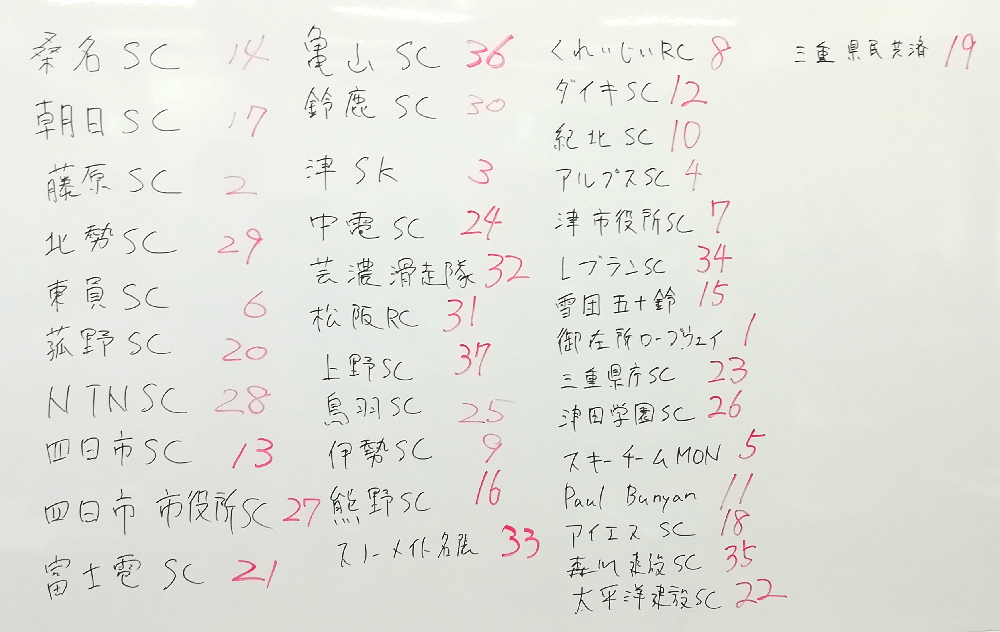 桑名SC 14
朝日SC 17
藤原SC 2
北勢SC 29
東員SC 6
菰野SC 20
NTNSC 28
四日市SC 13
四日市市役所SC 27
富士電SC 21
亀山SC 36
鈴鹿SC 30
津SK 3
中電SC 24
芸濃滑走隊 32
松阪RC 31
上野SC 37
鳥羽SC 25
伊勢SC 9
熊野SC 16
スノーメイト名張 33
くれいじいRC 8
ダイキSC 12
紀北SC 10
アルプスSC 4
津市役所SC 7
LブランSC 34
雪団五十鈴 15
御在所ロープウェイ 1
三重県庁SC 23
津田学園SC 26
スキーチームMON 5
Paul Bunyan 11
アイエスSC 18
森川建設SC 35
太平洋建設SC 22
三重県民共済 19